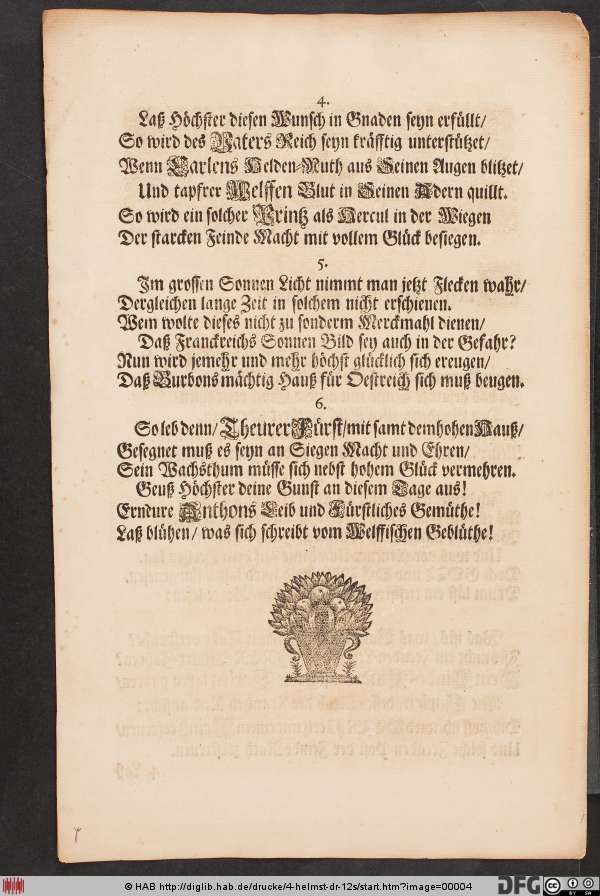 4.
Laß Höchster diesen Wunsch in Gnaden seyn erfüllt/
So wird des Vaters Reich seyn kräfftig unterstützet/
Wenn Carlens Helden-Muth aus Seinen Augen blitzet/
Und tapfrer Welffen Blut in Seinen Adern quillt.
So wird ein solcher Printz als Hercul in der Wiegen
Der starcken Feinde Macht mit vollem Glück besiegen.
5.
Im grossen Sonnen Licht nimmt man jetzt Flecken wahr/
Dergleichen lange Zeit in solchem nicht erschienen.
Wem wolte dieses nicht zu sonderm Merckmahl dienen/
Daß Franckreichs Sonnen Bild sey auch in der Gefahr?
Nun wird jemehr und mehr höchst glücklich sich ereugen/
Daß Burbons mächtig Hauß für Oestreich sich muß beugen.
6.
So leb denn/ Theurer Fürst/ mit samt dem hohen Hauß/
Gesegnet muß es seyn an Siegen Macht und Ehren/
Sein Wachsthum müsse sich nebst hohem Glück vermehren.
Geuß Höchster deine Gunst an diesem Tage aus!
Erndure Anthons Leib und Fürstliches Gemüthe!
Laß blühen/ was sich schreibt vom Welffischen Geblüthe!
© HAB http://diglib.hab.de/drucke/4-helmst-dr-12s/start.htm?image=00004
DFG
cc BY SA